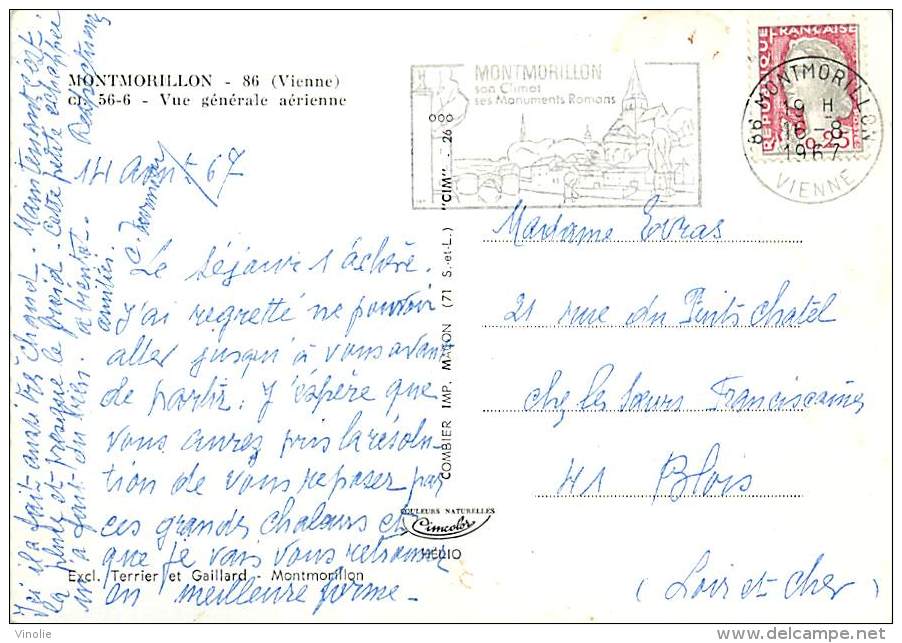 MONTMORILLON - 86 (Vienne)
CIM 56-6 - Vue générale aérienne
14 Août 67
Le séjour s'achève.
J'ai regretté ne pouvoir
aller jusqu'à vous avant
de partir. J'espère que
vous aurez pris la résolu-
tion de vous reposer par
ces grandes chaleurs et
que je vais vous retrouver
en meilleure forme -
Ici il a fait aussi très chaud. Maintenant c'est
la pluie et presque le froid - Cette petite échappée
m'a fait du bien. à bientôt -
amitiés.
Excl. Terrier et Gaillard - Montmorillon
COMBIER IMP. MACON (71 S.-et-L.) "CIM" - 26
COULEURS NATURELLES
Cimcolor
HELIO
MONTMORILLON
son Climat
ses Monuments Romans
REPUBLIQUE FRANÇAISE
0,25
86 MONTMORILLON
19 H
16-8
1967
VIENNE
Madame Evras
21 rue du Puits Chatel
chez les Soeurs Franciscaines
41 Blois
(Loir et Cher)
© Vinolie
delcampe.net